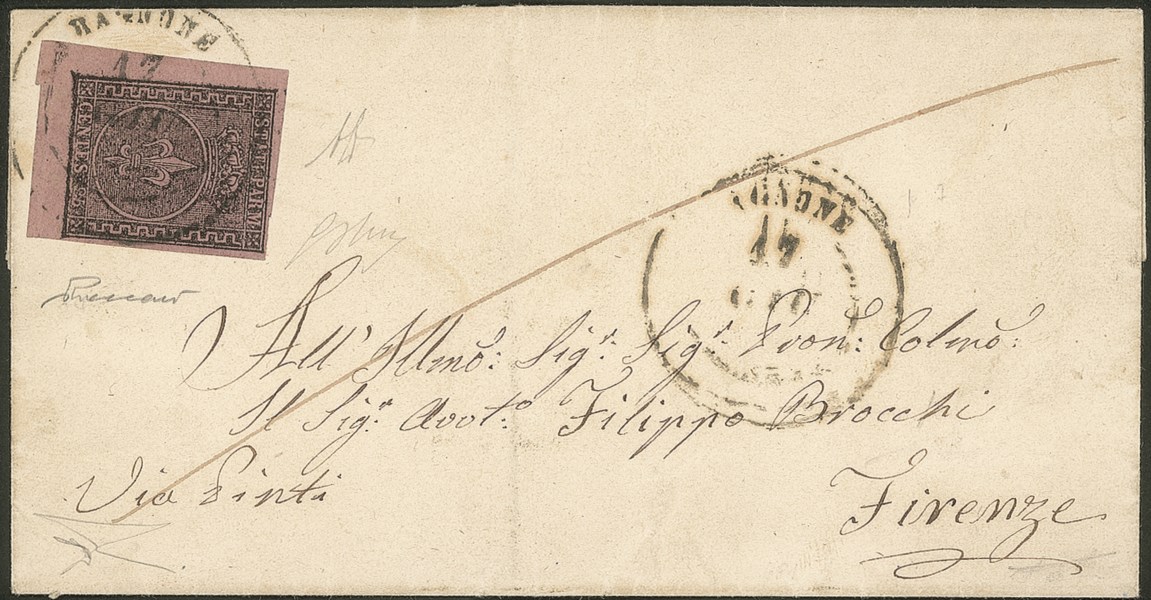 BAGNONE
17
STATI PARM.
CENTES. 25
GNONE
17
GIU
All' Illmo: Sigr. Sigr. Pron: Colmo:
Il Sigr. Avvto. Filippo Brocchi
Via Pinti
Firenze